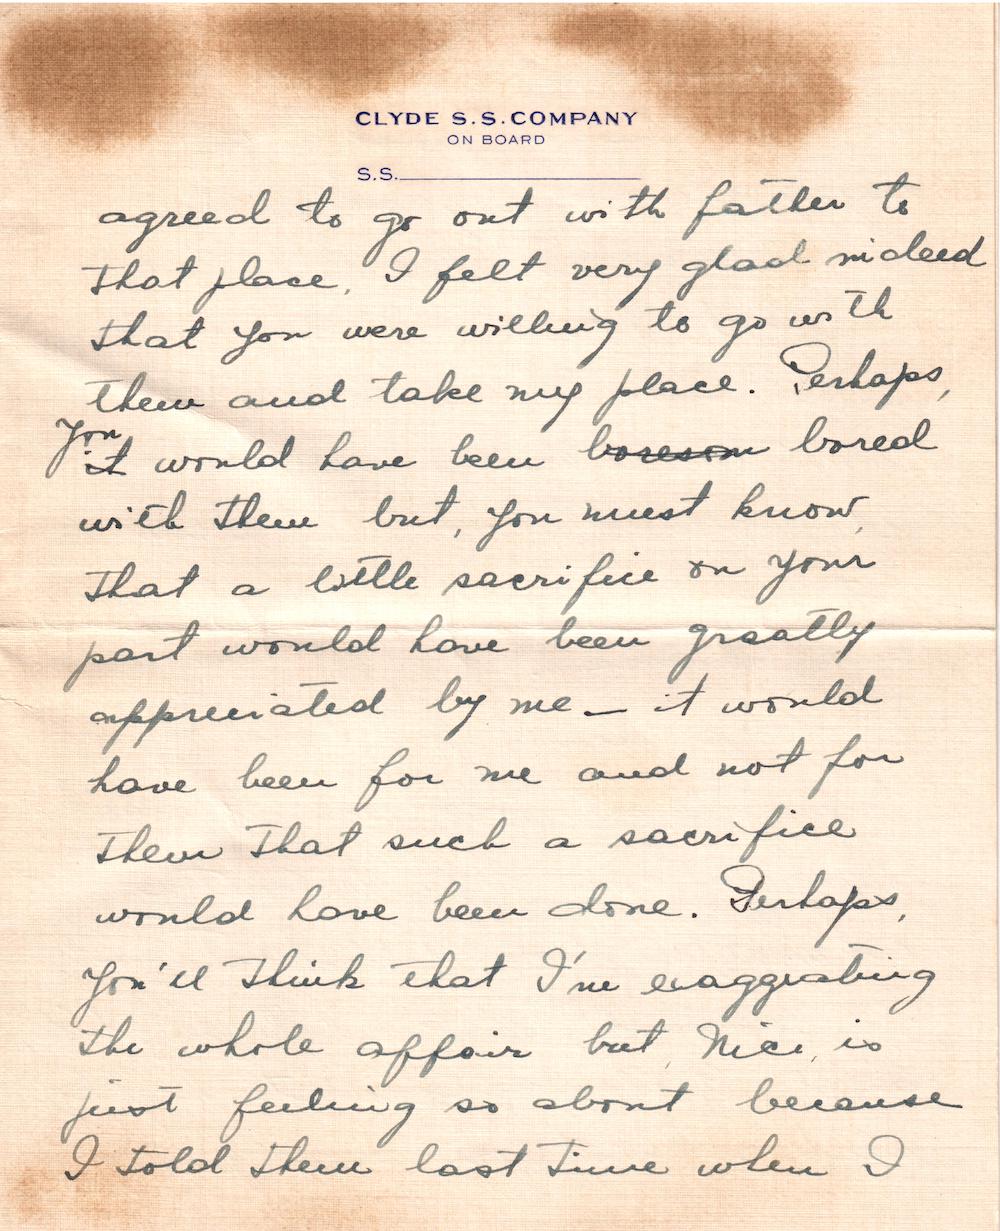 CLYDE S.S. COMPANY
ON BOARD
S.S.
agreed to go out with father to
that place, I felt very glad indeed
that you were willing to go with
them and take my place. Perhaps,
you
it would have been boresom bored
with them but, you must know,
that a little sacrifice on your
part would have been greatly
appreciated by me — it would
have been for me and not for
them that such a sacrifice
would have been done. Perhaps,
you'll think that I'm exaggrating
the whole affair but, Nici, is
just feeling so about because
I told them last time when I